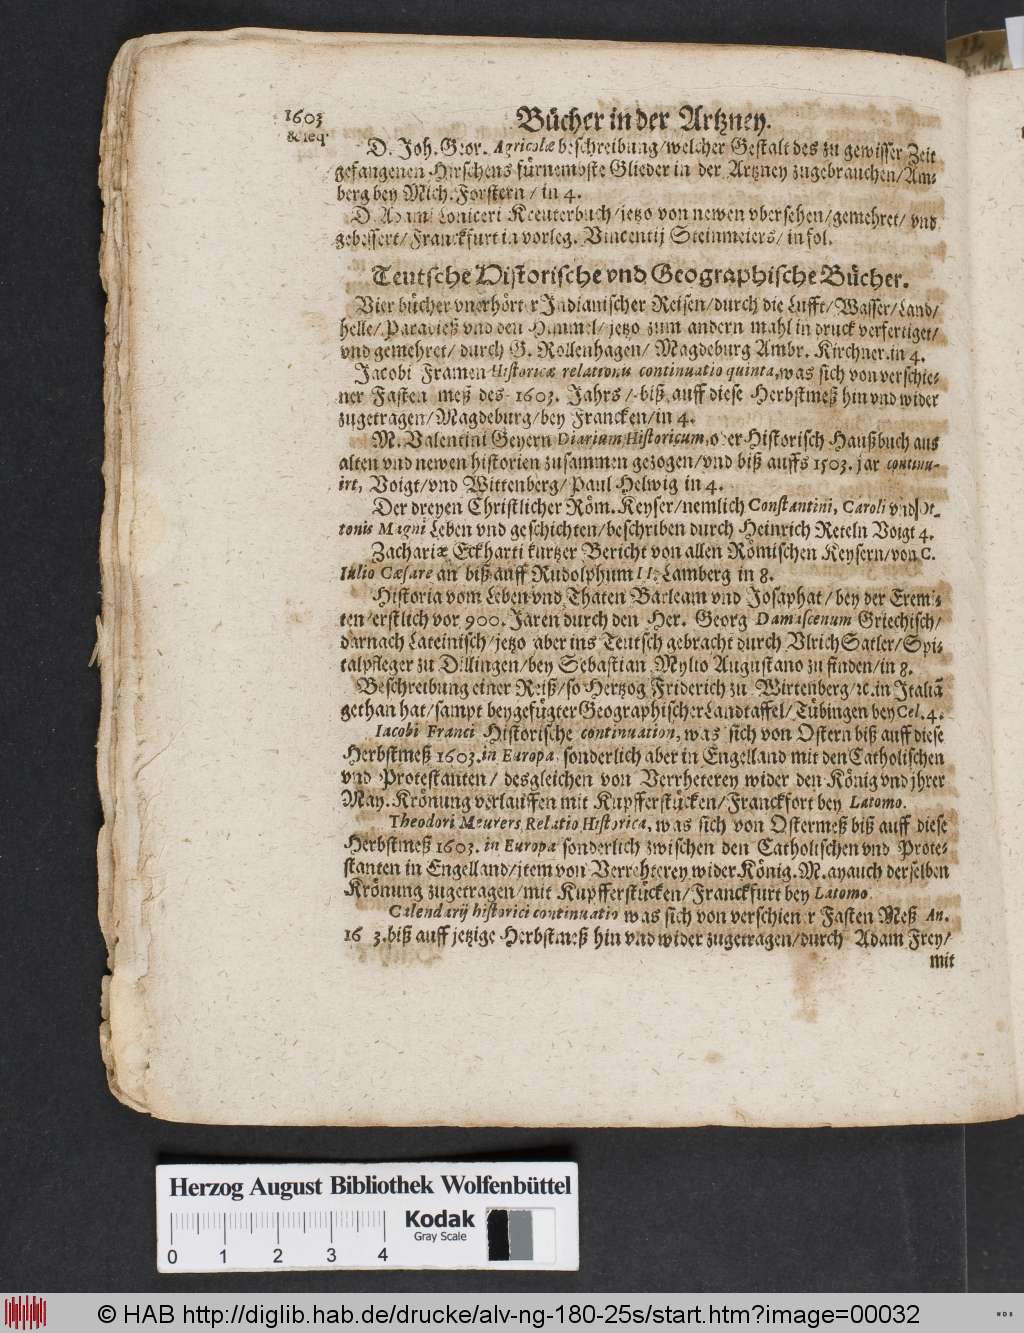 1603
&seq.
Bücher in der Artzney.
D. Joh. Geor. Agricolæ beschreibung/welcher Gestalt des zu gewisser Zeit
gefangenen Hirschens fürnembste Glieder in der Artzney zugebrauchen/Am-
berg bey Mich. Forstern / in 4.
D. Adami Loniceri Kreuterbuch/jetzo von newen vbersehen/gemehret/ vnd
gebessert/ Franckfurt in vorleg. Vincentij Steinmeiers/ in fol.
Teutsche Historische vnd Geographische Bücher.
Vier bücher vnerhörter Indianischer Reisen/durch die Lufft/ Wasser/Land/
helle/ Paradieß vnd den Himmel/ jetzo zum andern mahl in druck verfertiget/
vnd gemehret/ durch G. Rollenhagen/ Magdeburg Ambr. Kirchner.in 4.
Jacobi Framen Historicæ relationis continuatio quinta, was sich von verschie-
ner Fasten meß des 1603. Jahrs / biß auff diese Herbstmeß hin vnd wider
zugetragen/Magdeburg/bey Francken/in 4.
M. Valentini Geyern Diarium Historicum, oder Historisch Haußbuch aus
alten vnd newen historien zusammen gezogen/vnd biß auffs 1503. jar continu-
irt, Voigt/vnd Wittenberg/ Paul Helwig in 4.
Der dreyen Christlicher Röm. Keyser/nemlich Constantini, Caroli vnd Ot-
tonis Magni Leben vnd geschichten/beschriben durch Heinrich Reteln Voigt 4.
Zachariæ Eckharti kurtzer Bericht von allen Römischen Keysern/von C.
Iulio Cæsare an biß auff Rudolphum II. Lamberg in 8.
Historia vom Leben vnd Thaten Barleam vnd Josaphat/ bey der Eremi-
ten/erstlich vor 900. Jaren durch den Her. Georg Damascenum Griechisch/
darnach Lateinisch/jetzo aber ins Teutsch gebracht durch Vlrich Satler/Spi-
talpfleger zu Dillingen/bey Sebastian Mylio Augustano zu finden/in 8.
Beschreibung einer Reiß/so Hertzog Friderich zu Wirtenberg/ꝛc.in Italiā
gethan hat/sampt beygefügter Geographischer Landtaffel/ Tübingen bey Cel. 4.
Iacobi Franci Historische continuation, was sich von Ostern biß auff diese
Herbstmeß 1603. in Europa, sonderlich aber in Engelland mit den Catholischen
vnd Protestanten/ desgleichen von Verrheterey wider den König vnd jhrer
May. Krönung verlauffen mit Kupfferstücken/Franckfort bey Latomo.
Theodori Meurers Relatio Historica, was sich von Ostermeß biß auff diese
Herbstmeß 1603. in Europa sonderlich zwischen den Catholischen vnd Prote-
stanten in Engelland/jtem von Verrehterey wider König. M. ayauch derselben
Krönung zugetragen/mit Kupfferstücken/Franckfurt bey Latomo.
Calendarij historici continuatio was sich von verschiener Fasten Meß An.
16 3.biß auff jetzige Herbstmeß hin vnd wider zugetragen/durch Adam Frey/
mit
Herzog August Bibliothek Wolfenbüttel
Kodak
Gray Scale
0 1 2 3 4
© HAB http://diglib.hab.de/drucke/alv-ng-180-25s/start.htm?image=00032